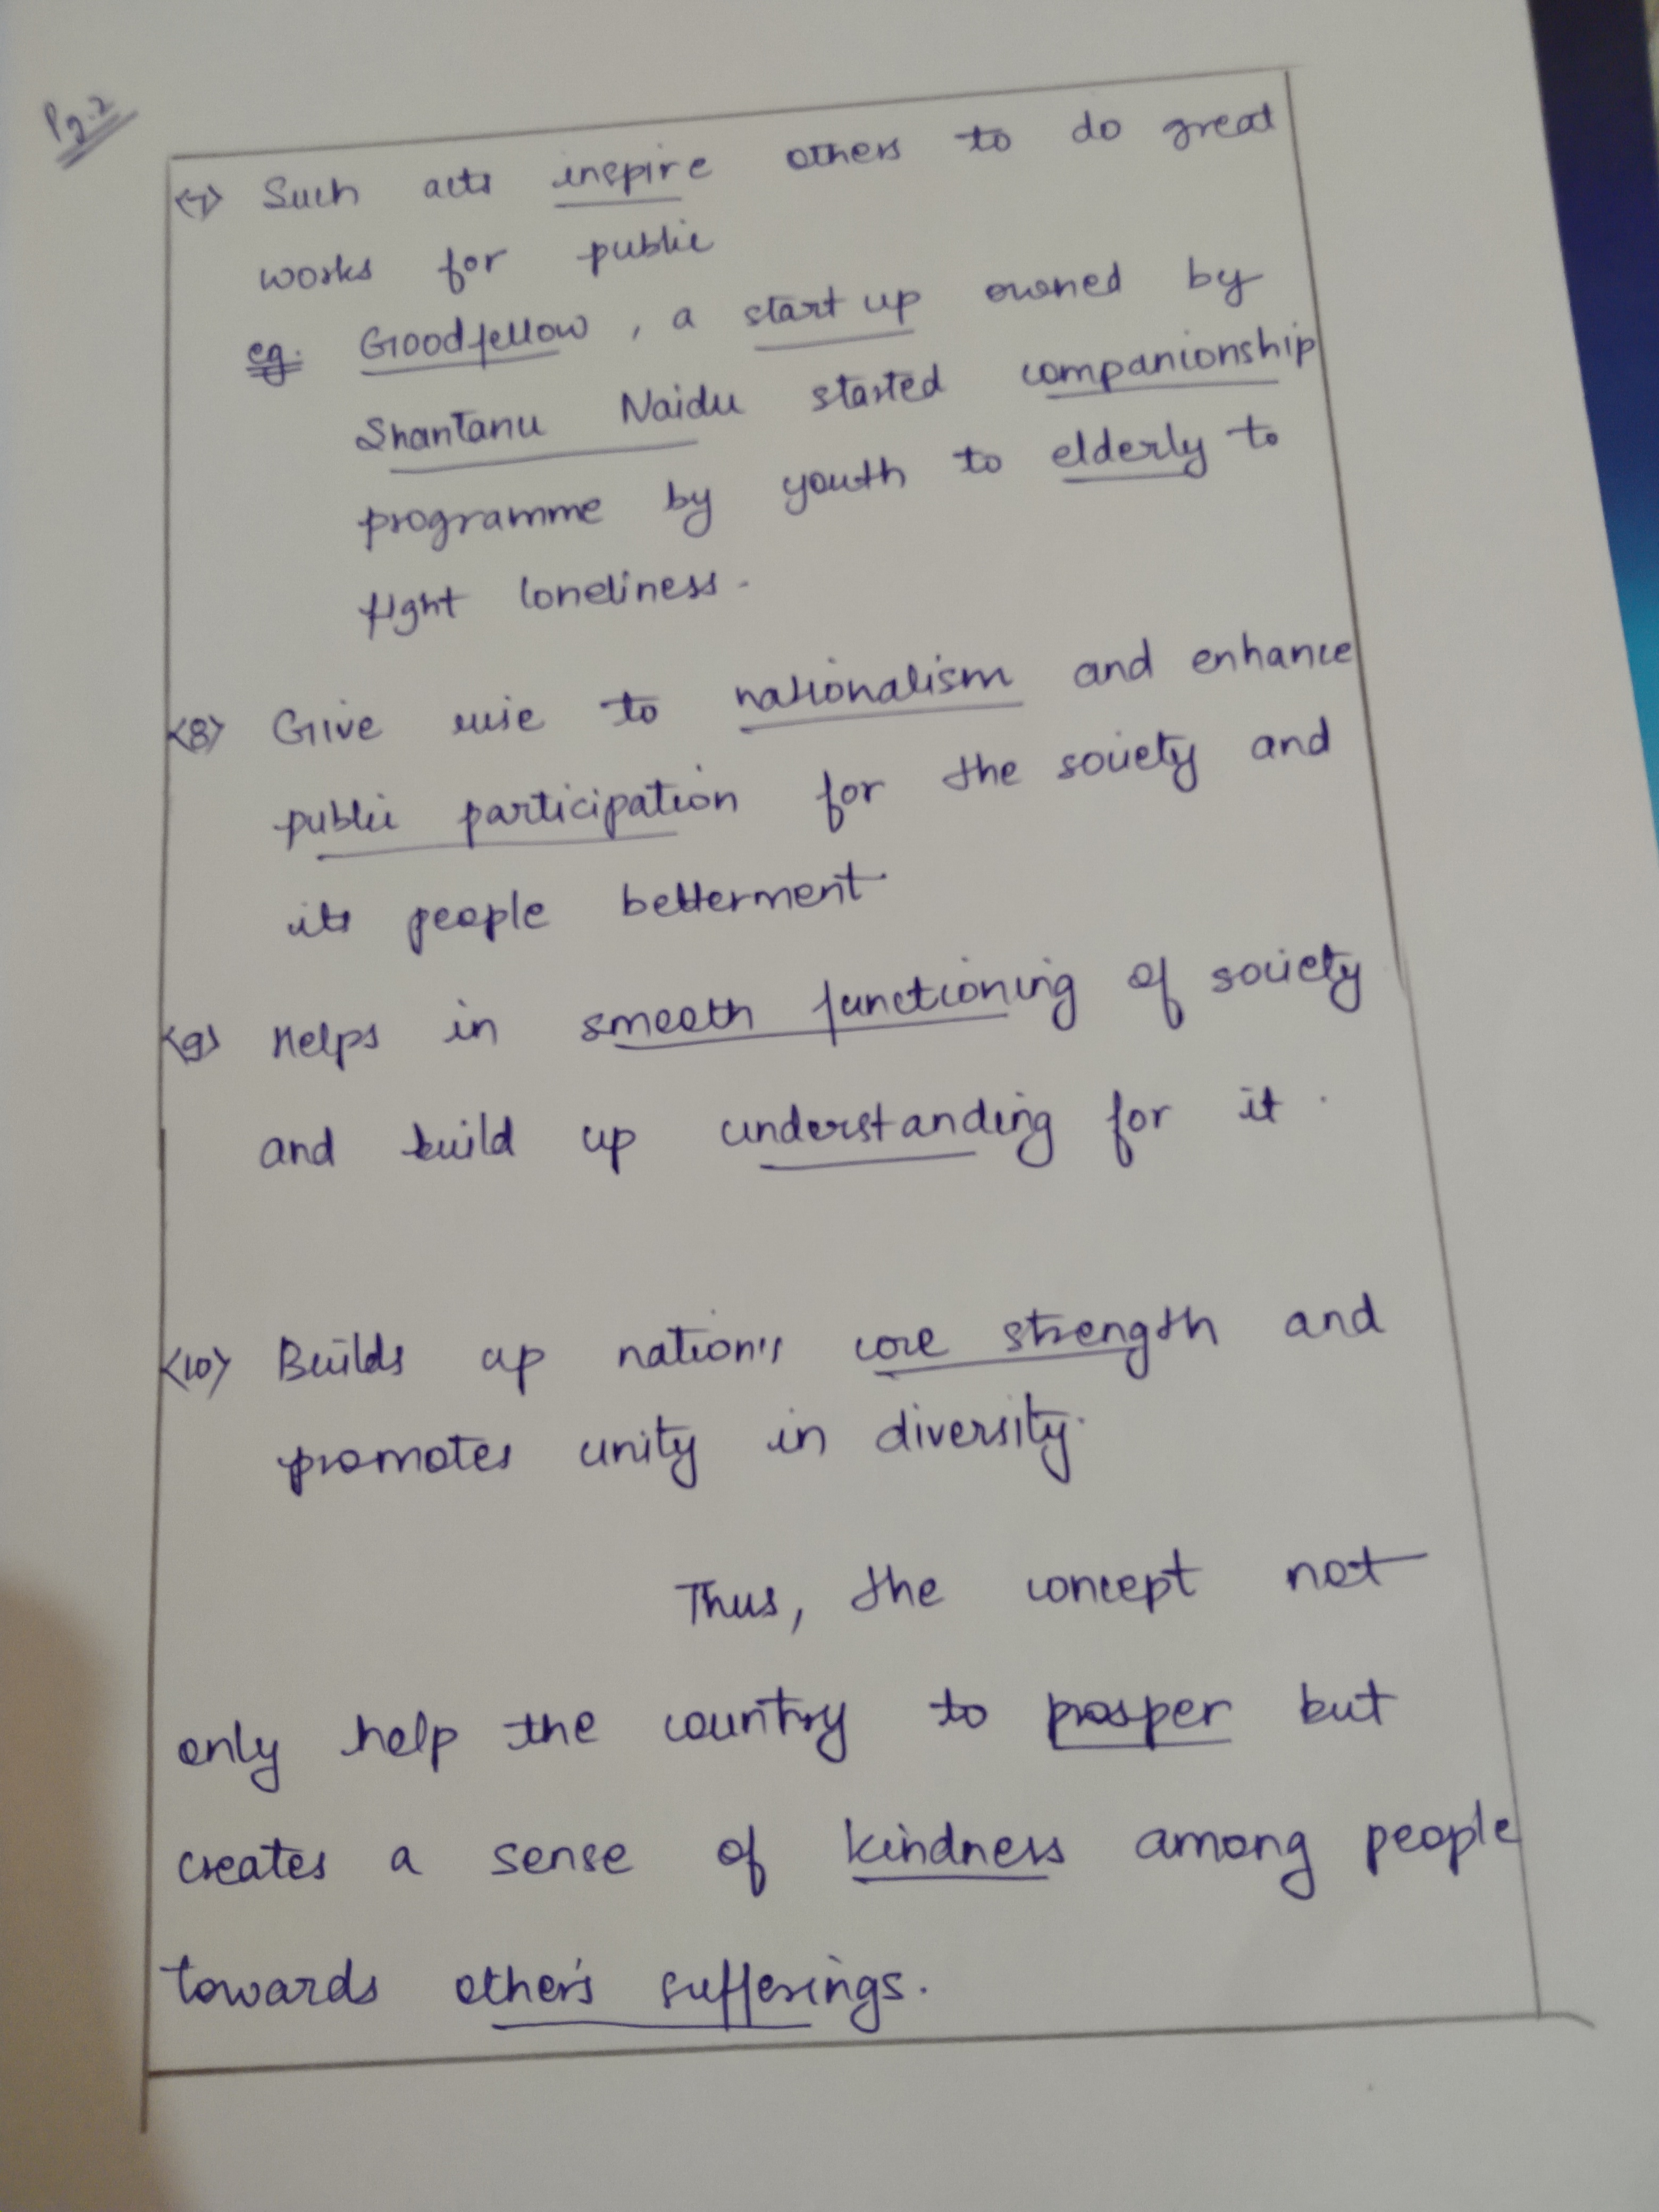 Pg.2
<7> Such acts inspire others to do great
works for public
eg. Goodfellow, a start up owned by
Shantanu Naidu started companionship
programme by youth to elderly to
fight loneliness.
<8> Give rise to nationalism and enhance
public participation for the society and
its people betterment.
<9> Helps in smooth functioning of society
and build up understanding for it.
<10> Builds up nation's core strength and
promotes unity in diversity.
Thus, the concept not
only help the country to prosper but
creates a sense of kindness among people
towards other's sufferings.